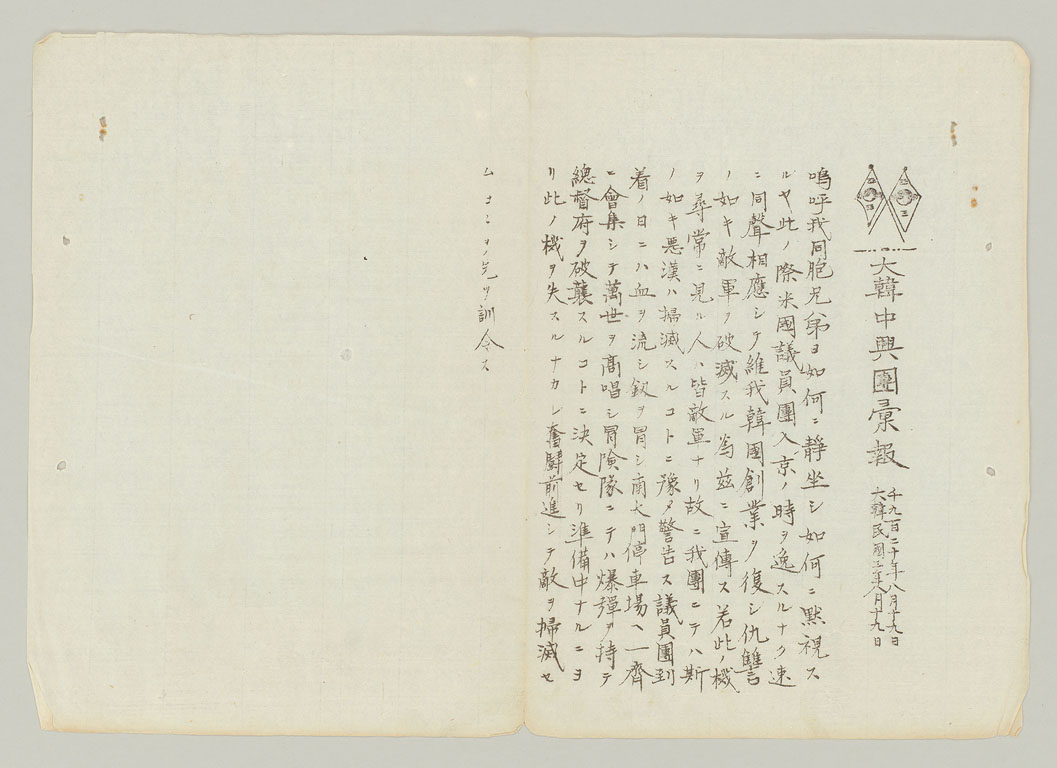 大韓中興團彙報
千九百二十年八月十九日
大韓民國二年八月十九日
嗚呼我同胞兄弟ヨ如何ニ靜坐シ如何ニ黙視ス
ルヤ此ノ際米國議員團入京ノ時ヲ逸スルナク速
ニ同聲相應シテ維我韓國創業ヲ復シ仇讐
ノ如キ敵軍ヲ破滅スル為茲ニ宣傳ス若此ノ機
ヲ尋常ニ見ル人ハ皆敵軍ナリ故ニ我團ニテハ斯
ノ如キ悪漢ハ掃滅スルコトニ豫メ警告ス議員團到
着ノ日ニハ血ヲ流シ釼ヲ冒シ南大門停車場ヘ一齊
ニ會集シテ萬世ヲ高唱シ冒険隊ニテハ爆弾ヲ持テ
總督府ヲ破襲スルコトニ決定セリ準備中ナルニヨ
リ此ノ機ヲ失スルナカレ奮闘前進シテ敵ヲ掃滅セ
ムコトヲ先ツ訓令ス